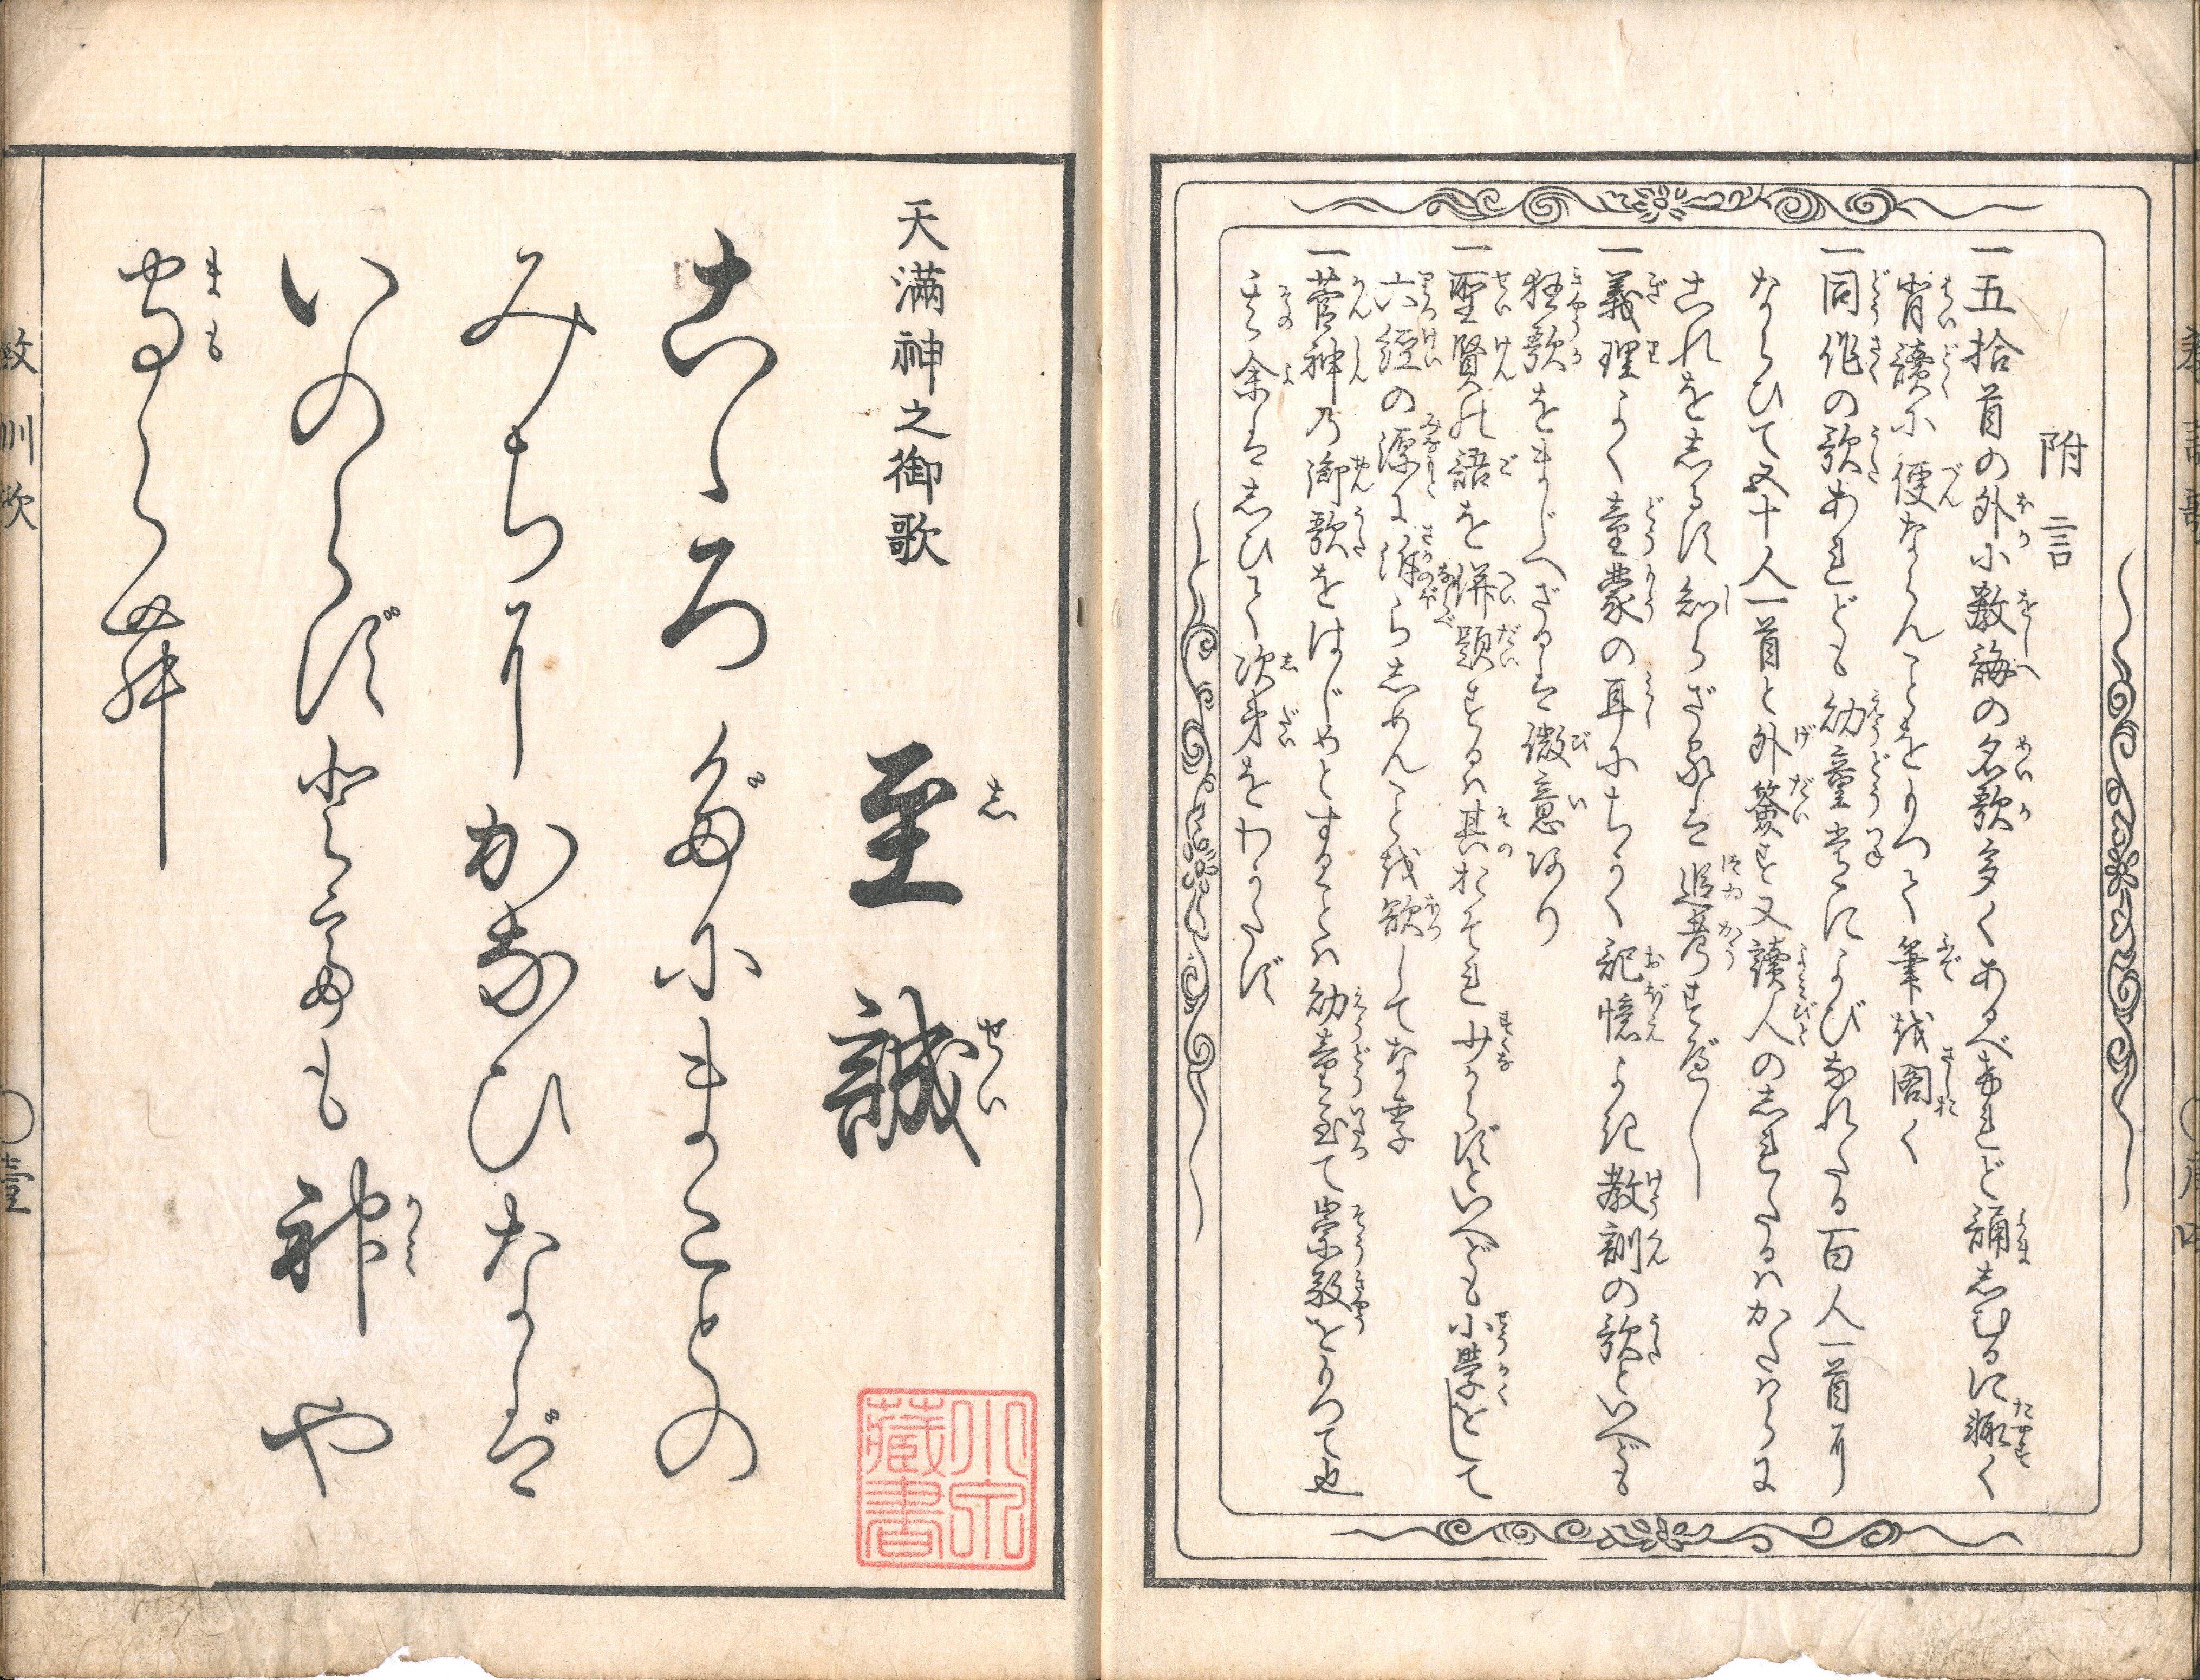 附言
一五拾首の外に教誨の名歌多くあるべけれど誦しむるに輙く
背讀に便ならんことをもつて筆を閣く
一同作の歌あれども幼童常によびなれたる百人一首に
ならひて又十人一首と外簽す又讀人のしれたるはかたはらに
これをしるす知らざるは追考すべし
一義理よく童蒙の耳にちかく記憶よき教訓の歌といへども
狂歌をまじへざるは微意あり
一聖賢の語を併題するは其おそれ少からずといへども小學をして
六經の源に泝らしめんことを欲してなり
一菅神乃御歌をはじめとすることは幼童をして崇敬をもつて也
其余はしひて次第をわかたず
天満神之御歌
至誠
しせい
こゝろだにまことの
みちにかなひなば
いのらずとても神や
かみ
守らむ
まも
小宗
藏書
教訓歌
〇壹